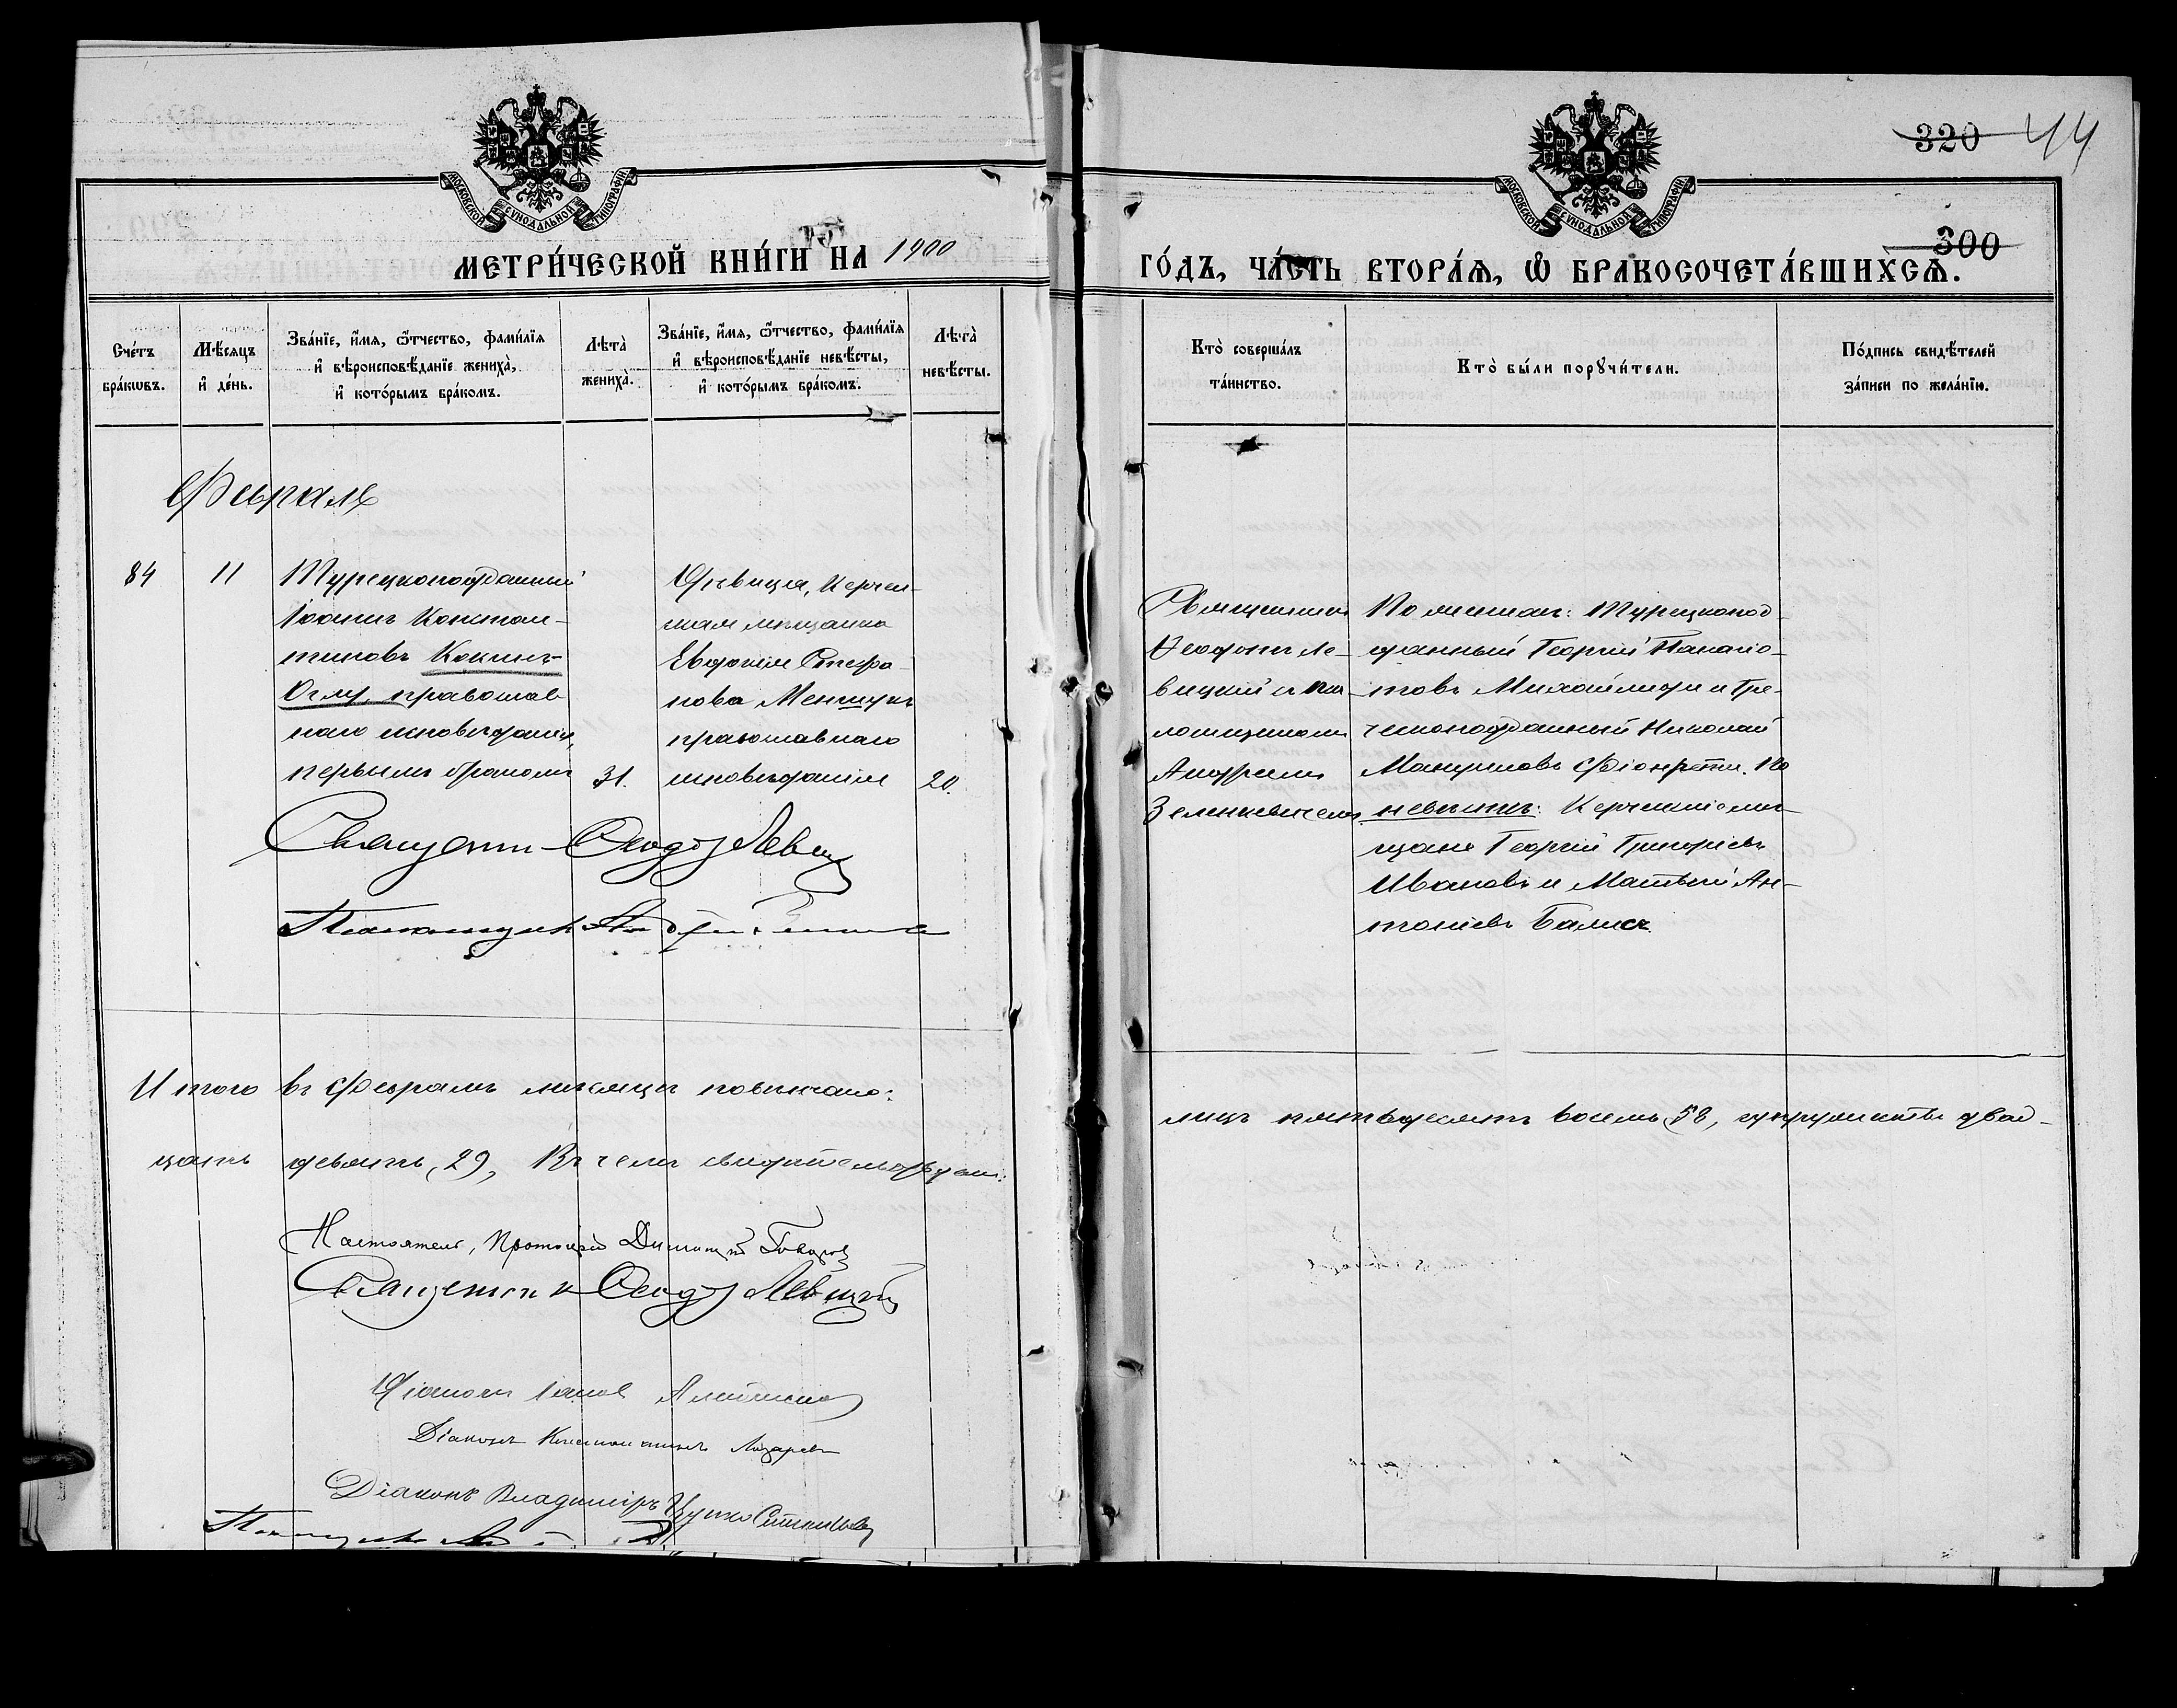 320 44
300
МОСКОВСКОЙ СУНОДАЛЬНОЙ ТИПОГРАФІИ
МОСКОВСКОЙ СУНОДАЛЬНОЙ ТИПОГРАФІИ
МЕТРИ́ЧЕСКОЙ КНИ́ГИ НА 1900
ГО́ДЪ, ЧА́СТЬ ВТОРА́Я, Ѿ БРАКОСОЧЕТА́ВШИХСЯ.
Сче́тъ бра́ківъ.
Мѣ́сяцъ и҆ де́нь.
Зва́нїе, и҆́мя, ѻ҆́тчество, фами́лїя
и҆ вѣроисповѣ́данїе жениха̀,
и҆ кото́рымъ бра́комъ.
Лѣта̀ жениха̀.
Зва́нїе, и҆́мя, ѻ҆́тчество, фами́лїя
и҆ вѣроисповѣ́данїе невѣ́сты,
и҆ кото́рымъ бра́комъ.
Лѣта̀ невѣ́сты.
Кто̀ соверша́лъ
та́инство.
Кто̀ бы́ли порꙋчи́тели.
По́дпись свидѣ́телей
за́писи по жела́нїю.
Февраль
84
11
Турецкоподданный
Іоаннъ Констан-
тиновъ Кокинъ-
Оглу, православ-
наго исповѣданія,
первымъ бракомъ
31.
Дѣвица, Керчен-
ская мѣщанка
Евдокія Стефа-
нова
православнаго
исповѣданія
20.
Священникъ
Ѳеодоръ Ле-
вицкій съ пса-
ломщикомъ
Андреемъ
Зеленкевичемъ
По женихѣ: Турецкопод-
данный Георгій Панаіо-
товъ Михаилиди и Гре-
ческоподданный Николай
По
невѣстѣ: Керченскіе мѣ-
щане Георгій Григорьевъ
Ивановъ и Матвѣй Ан-
тоніевъ
Священникъ Ѳеодоръ Левицкій
Псаломщикъ Андрей
Итого въ Февралѣ мѣсяцѣ повѣнчано:
лицъ пятьдесятъ восемь, 58, супружествъ двад-
цать девять, 29, Въ чемъ свидѣтельствуемъ:
Настоятель, Протоіерей Димитрій
Священникъ Ѳеодоръ Левицкій
Діаконъ
Діаконъ Константинъ Лазаревъ
Діаконъ Владиміръ
Псаломщикъ